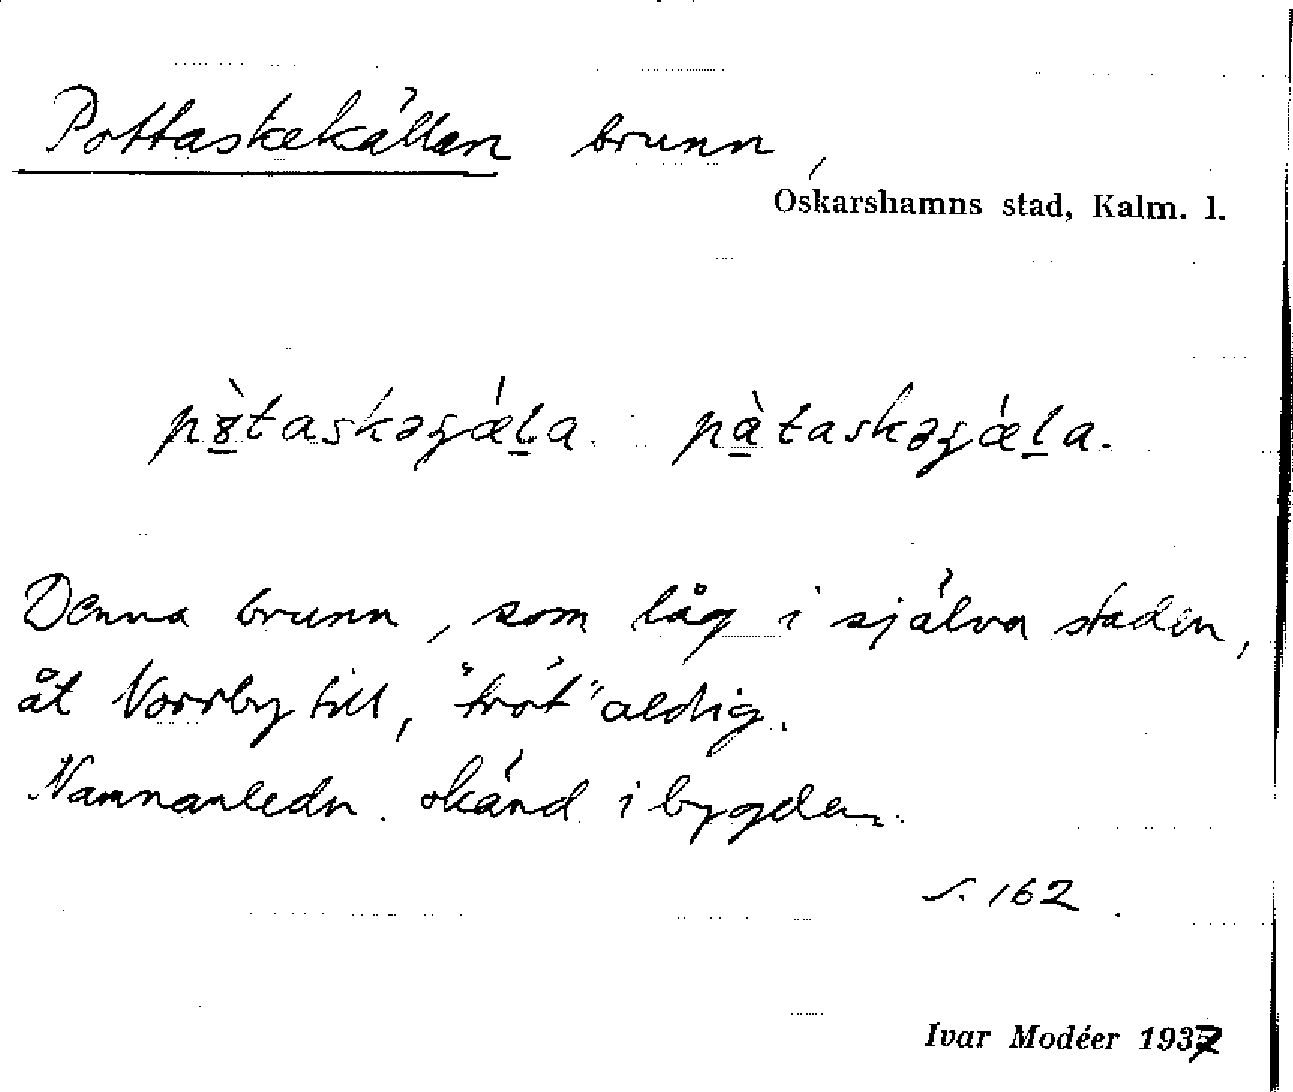 Pottaskekällan brunn,
Oskarshamns stad, Kalm. l.
Denna brunn, som låg i själva staden,
åt Norrby till, "tröt" aldrig.
Namnanledn. okänd i bygden.
s. 162.
Ivar Modéer 1937